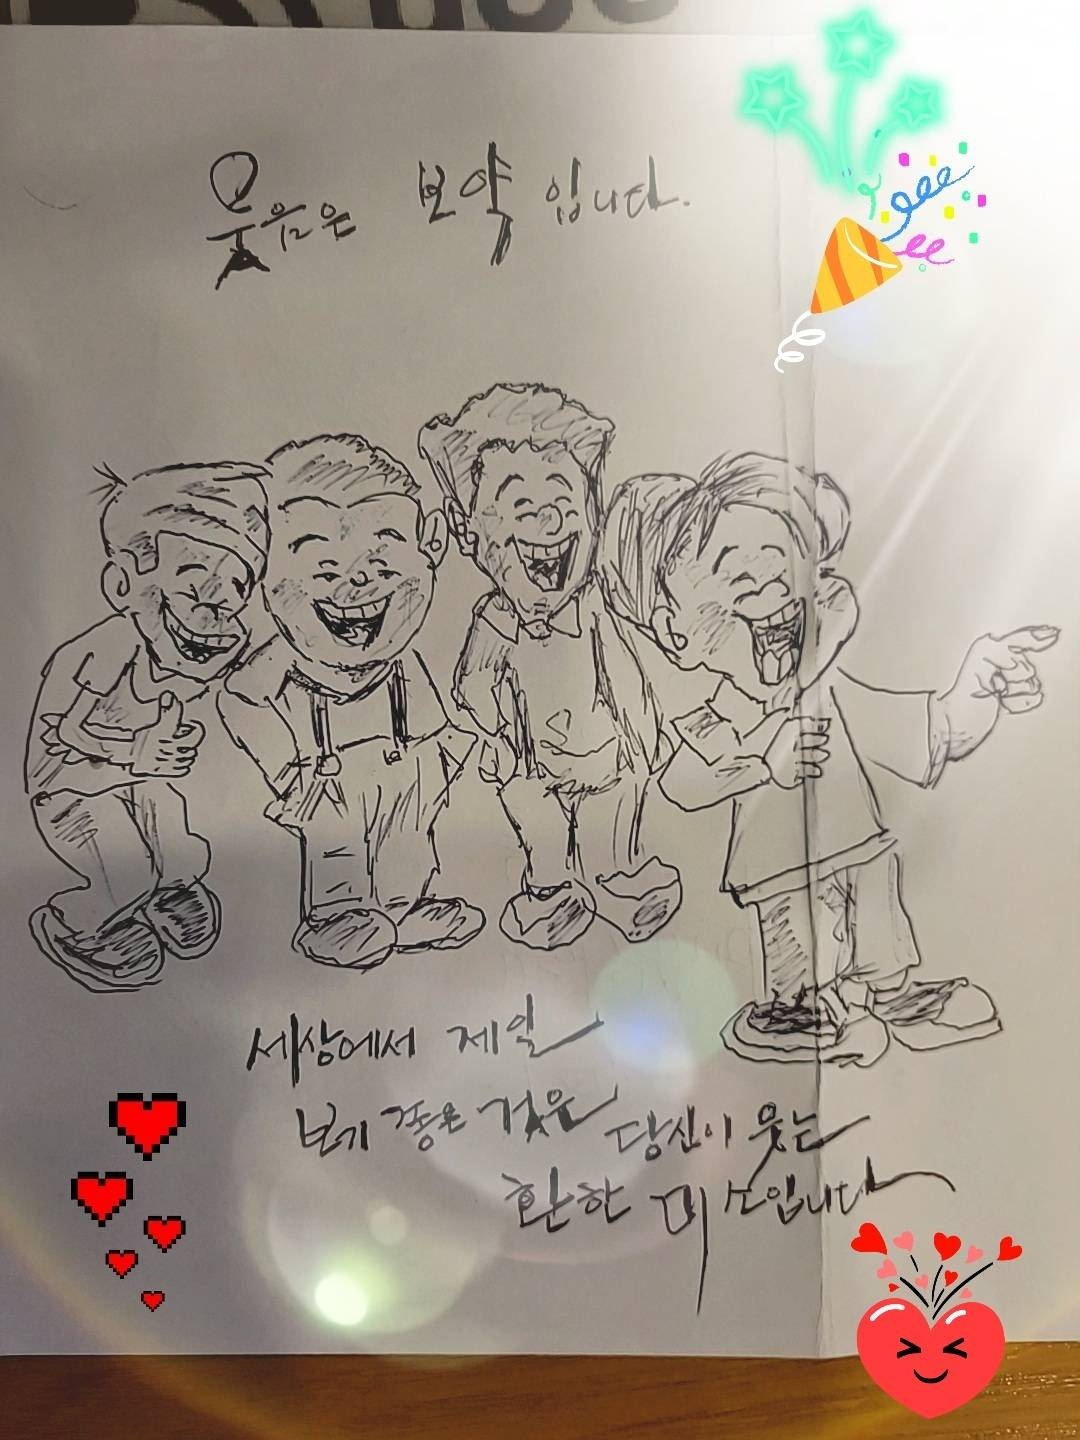 웃음은 보약 입니다.
세상에서 제일
보기 좋은 것은 당신이 웃는
환한 미소입니다